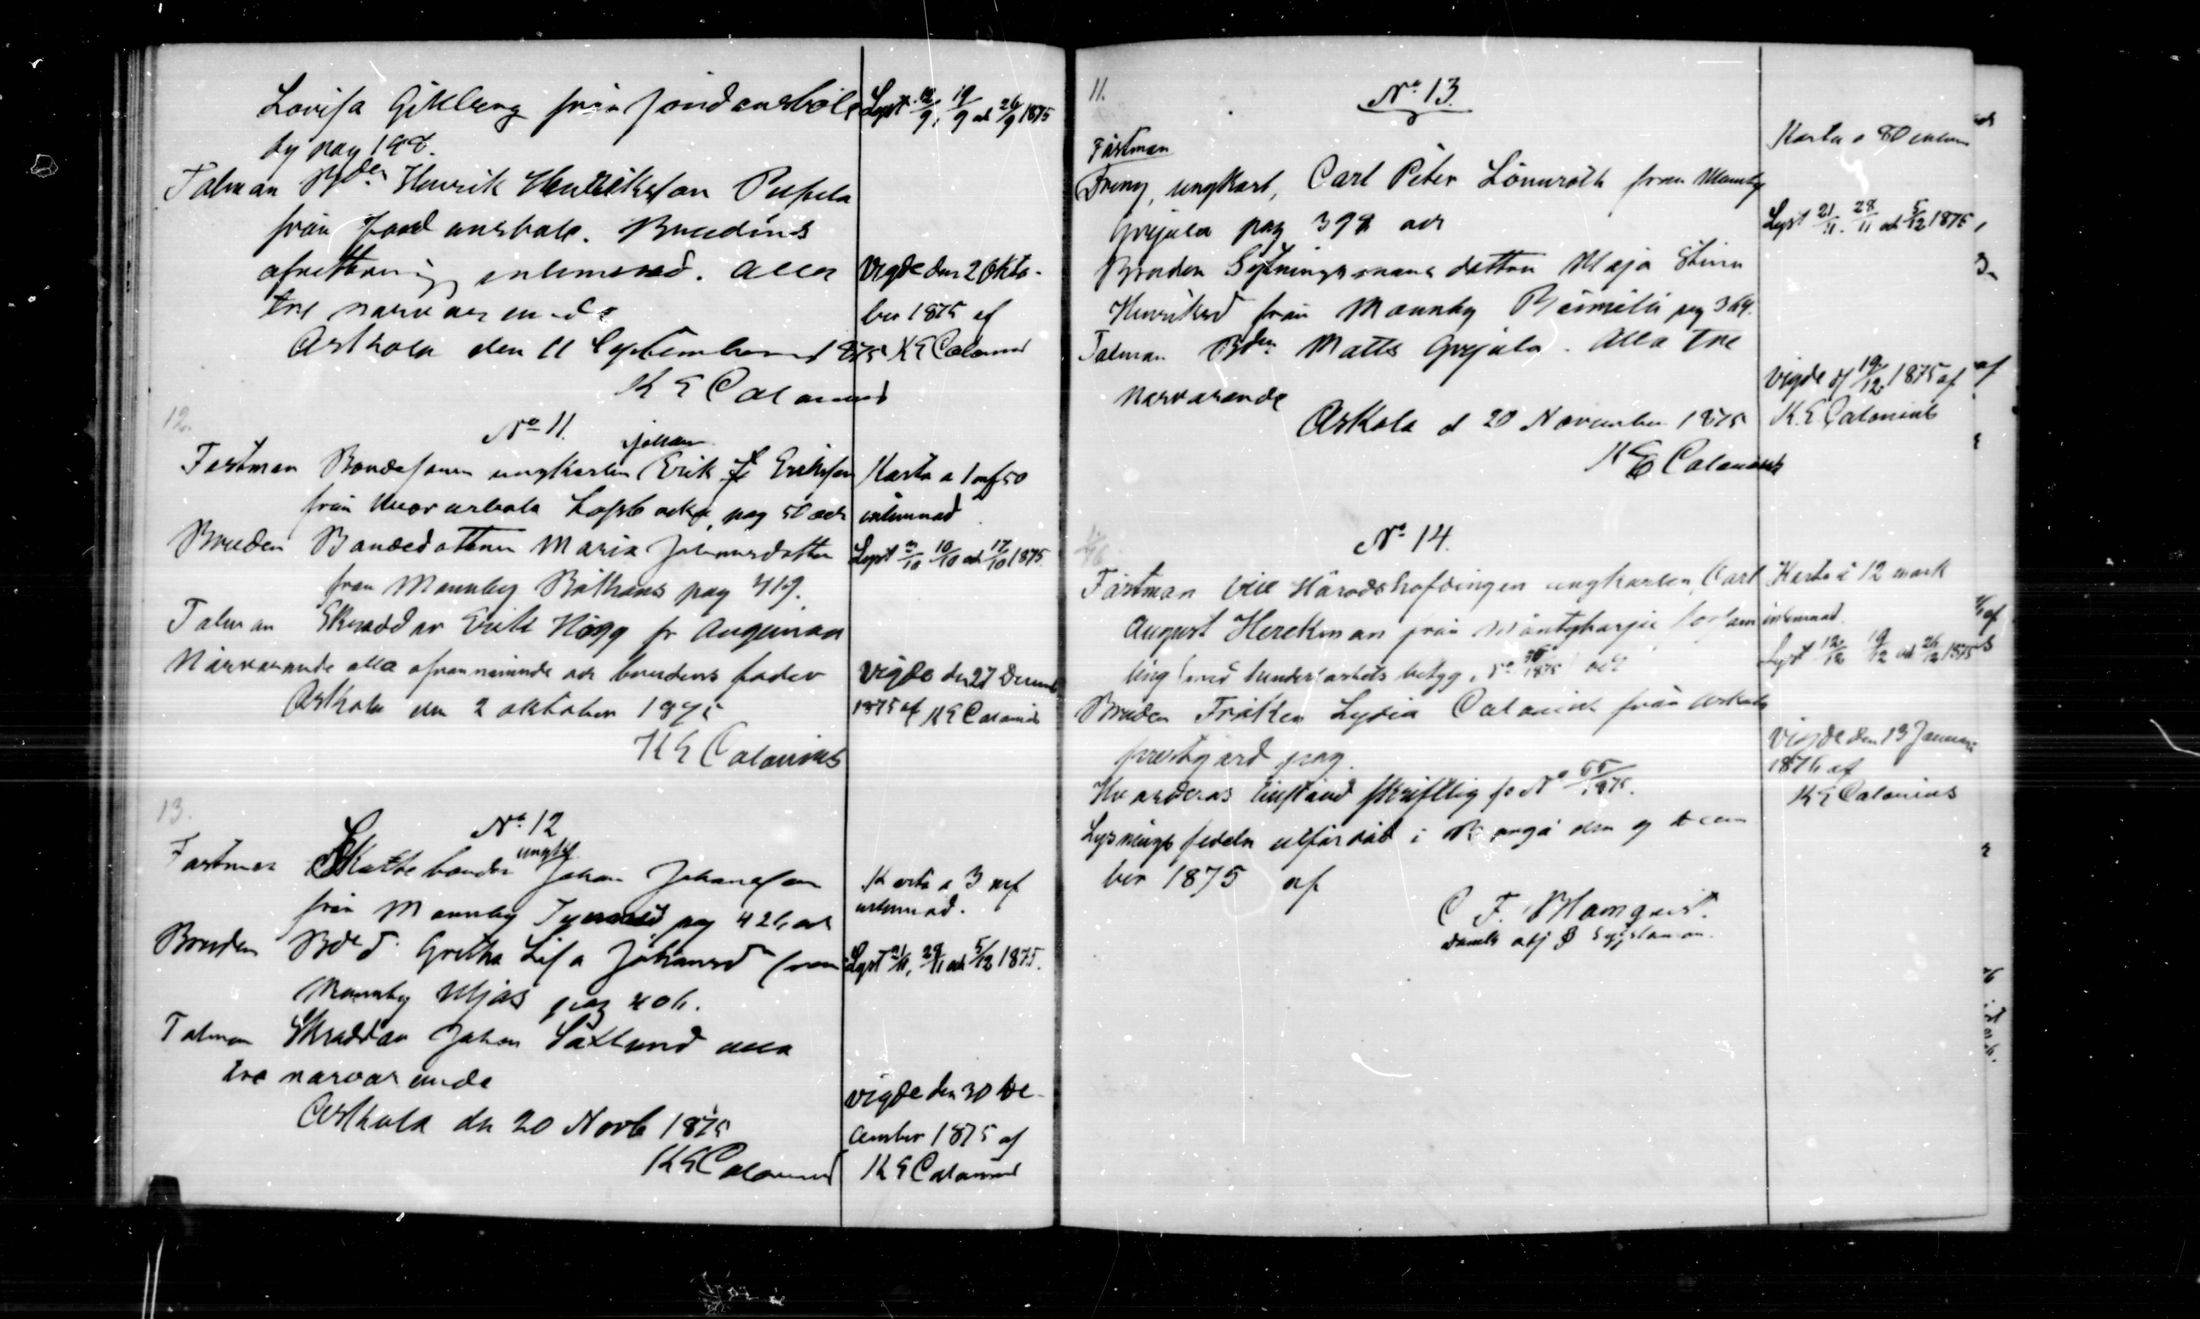 Lovisa Gillberg från Jordansböle
by pag 198.
Talman Bden Henrik Henriksson Pessela
från Jordansböle. Brudens
afvittring inlemnad. Alla
tre närvarande
Askola den 11 September 1875
K E Calonius
Lyst 12/9, 19/9 och 26/9 1875
Vigde den 2 Okto-
ber 1875 af
K E Calonius
12.
No 11.
Johan
Fästman Bondesonen ungkarlen Erik Eriksson
från pag 50 och
Bruden Bondedottren Maria Johansdotter
från Monnby pag 419.
Talman Skräddar Erik Högg fr
Närvarande alla ofvannämnde och brudens fader
Askola den 2 Oktober 1875
K E Calonius
Karta a 1 mf 50
inlemnad
Lyst 3/10 10/10 och 17/10 1875
Vigde den 27 Decemb
1875 af K E Calonius
13.
No 12
ungk
Fästman Skattebonden Johan Johansson
från Monnby pag 426 och
Bruden Bde d. Gretha Lisa Johansd från
Monnby pag 406.
Talman Skräddar Johan alla
tre närvarande
Askola den 20 Novb 1875
K E Calonius
Karta a 3 mf
inlemnad.
Lyst 21/11, 28/11 och 5/12 1875.
Vigde den 30 De-
cember 1875 af
K E Calonius
11.
No 13.
Fästman
Dreng, ungkarl, Carl Peter Lönnroth från Monnby
Grejula pag 398 och
Bruden Sytningsmans dottren Maja Stina
Henriksd från Monnby pag 369.
Talman Bden Matts Grejula. Alla tre
närvarande
Askola d 20 November 1875
K E Calonius
Karta a 80
Lyst 21/11. 28/11 och 5/12 1875
Vigde d 19/12 1875 af
K. E Calonius
No 14.
Fästman Vice Häradshöfdingen ungkarlen Carl
August Herckman från Mäntyharju församl
ling (med hinderlöshets betyg, No 1875) och
Bruden Fröken Lydia Calonius från Askola
prestgård pag.
Lysningssedeln utfärdad i Borgå den 9 Decem
ber 1875 af
C. F. Blomqvist.
Karta a 12 mark
inlemnad.
Lyst 12/12 19/12 och 26/12 1875
Vigde den 13 Januari
1876 af
K E Calonius